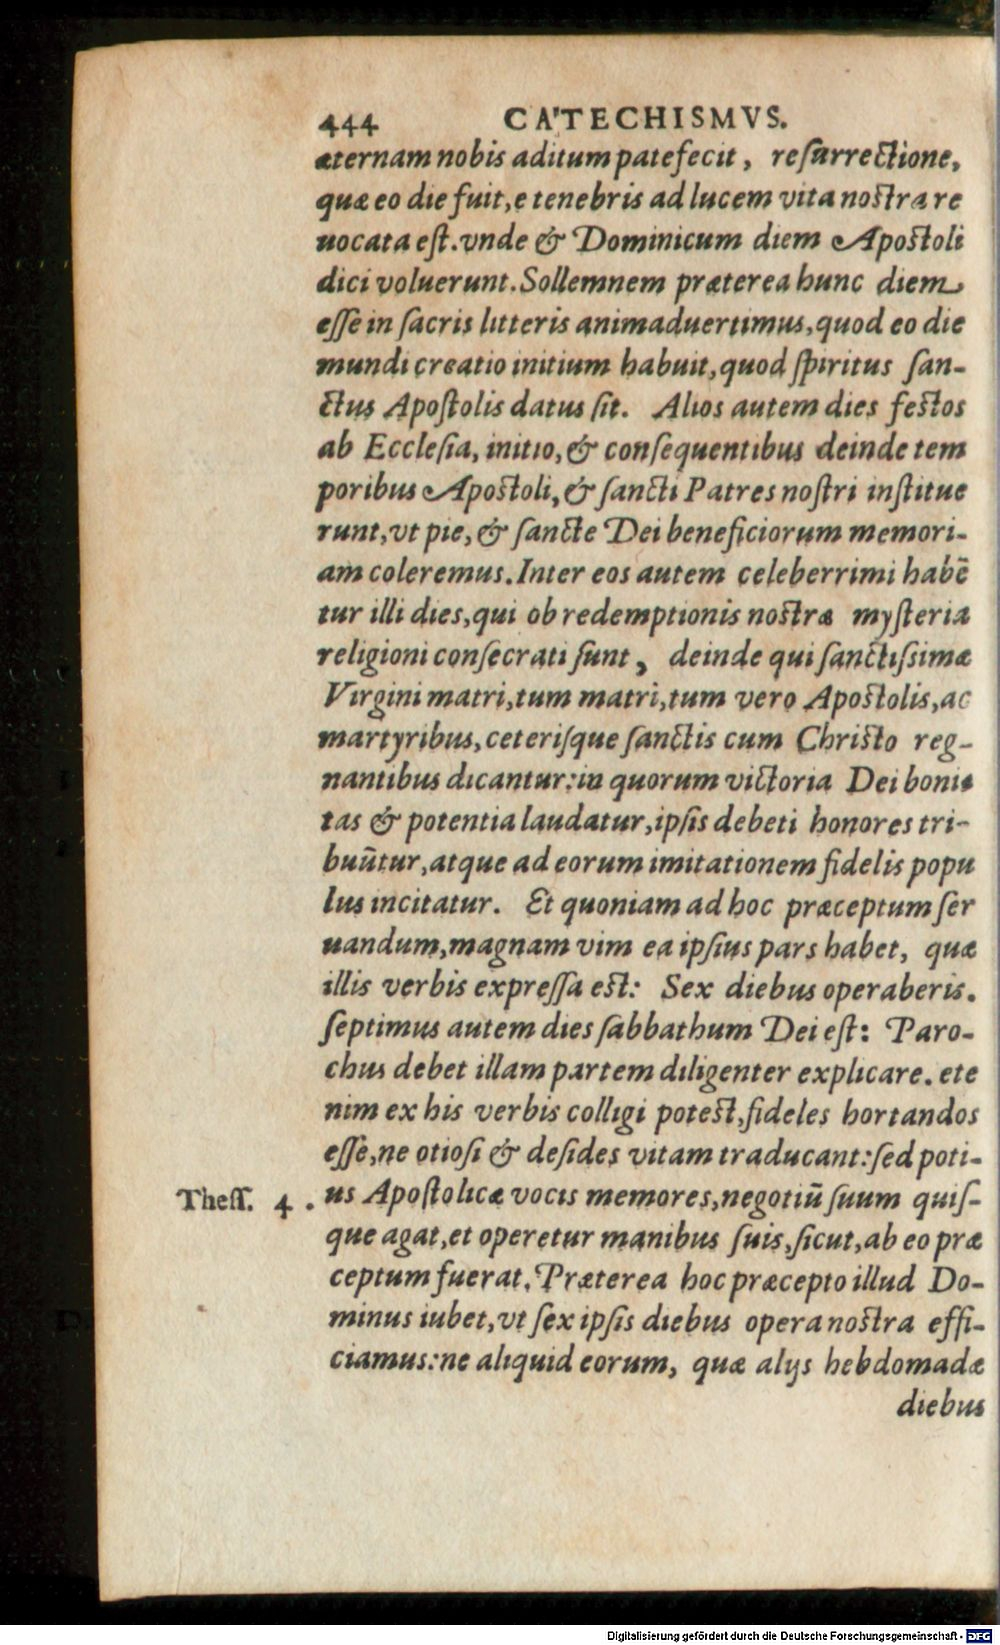 444 CATECHISMVS.
æternam nobis aditum patefecit, resurrectione,
quæ eo die fuit, e tenebris ad lucem vita nostra re
uocata est. vnde & Dominicum diem Apostoli
dici voluerunt. Sollemnem præterea hunc diem
esse in sacris litteris animaduertimus, quod eo die
mundi creatio initium habuit, quod spiritus san-
ctus Apostolis datus sit. Alios autem dies festos
ab Ecclesia, initio, & consequentibus deinde tem
poribus Apostoli, & sancti Patres nostri institue
runt, vt pie, & sancte Dei beneficiorum memori-
am coleremus. Inter eos autem celeberrimi habẽ
tur illi dies, qui ob redemptionis nostræ mysteria
religioni consecrati sunt, deinde qui sanctissimæ
Virgini matri, tum matri, tum vero Apostolis, ac
martyribus, ceterisque sanctis cum Christo reg-
nantibus dicantur: in quorum victoria Dei boni
tas & potentia laudatur, ipsis debeti honores tri-
buũtur, atque ad eorum imitationem fidelis popu
lus incitatur. Et quoniam ad hoc præceptum ser
uandum, magnam vim ea ipsius pars habet, quæ
illis verbis expressa est: Sex diebus operaberis.
septimus autem dies sabbathum Dei est: Paro-
chus debet illam partem diligenter explicare. ete
nim ex his verbis colligi potest, fideles hortandos
esse, ne otiosi & desides vitam traducant: sed poti-
Thess. 4. us Apostolicæ vocis memores, negotiũ suum quis-
que agat, et operetur manibus suis, sicut, ab eo præ
ceptum fuerat. Præterea hoc præcepto illud Do-
minus iubet, vt sex ipsis diebus opera nostra effi-
ciamus: ne aliquid eorum, quæ alijs hebdomadæ
diebus
Digitalisierung gefördert durch die Deutsche Forschungsgemeinschaft - DFG